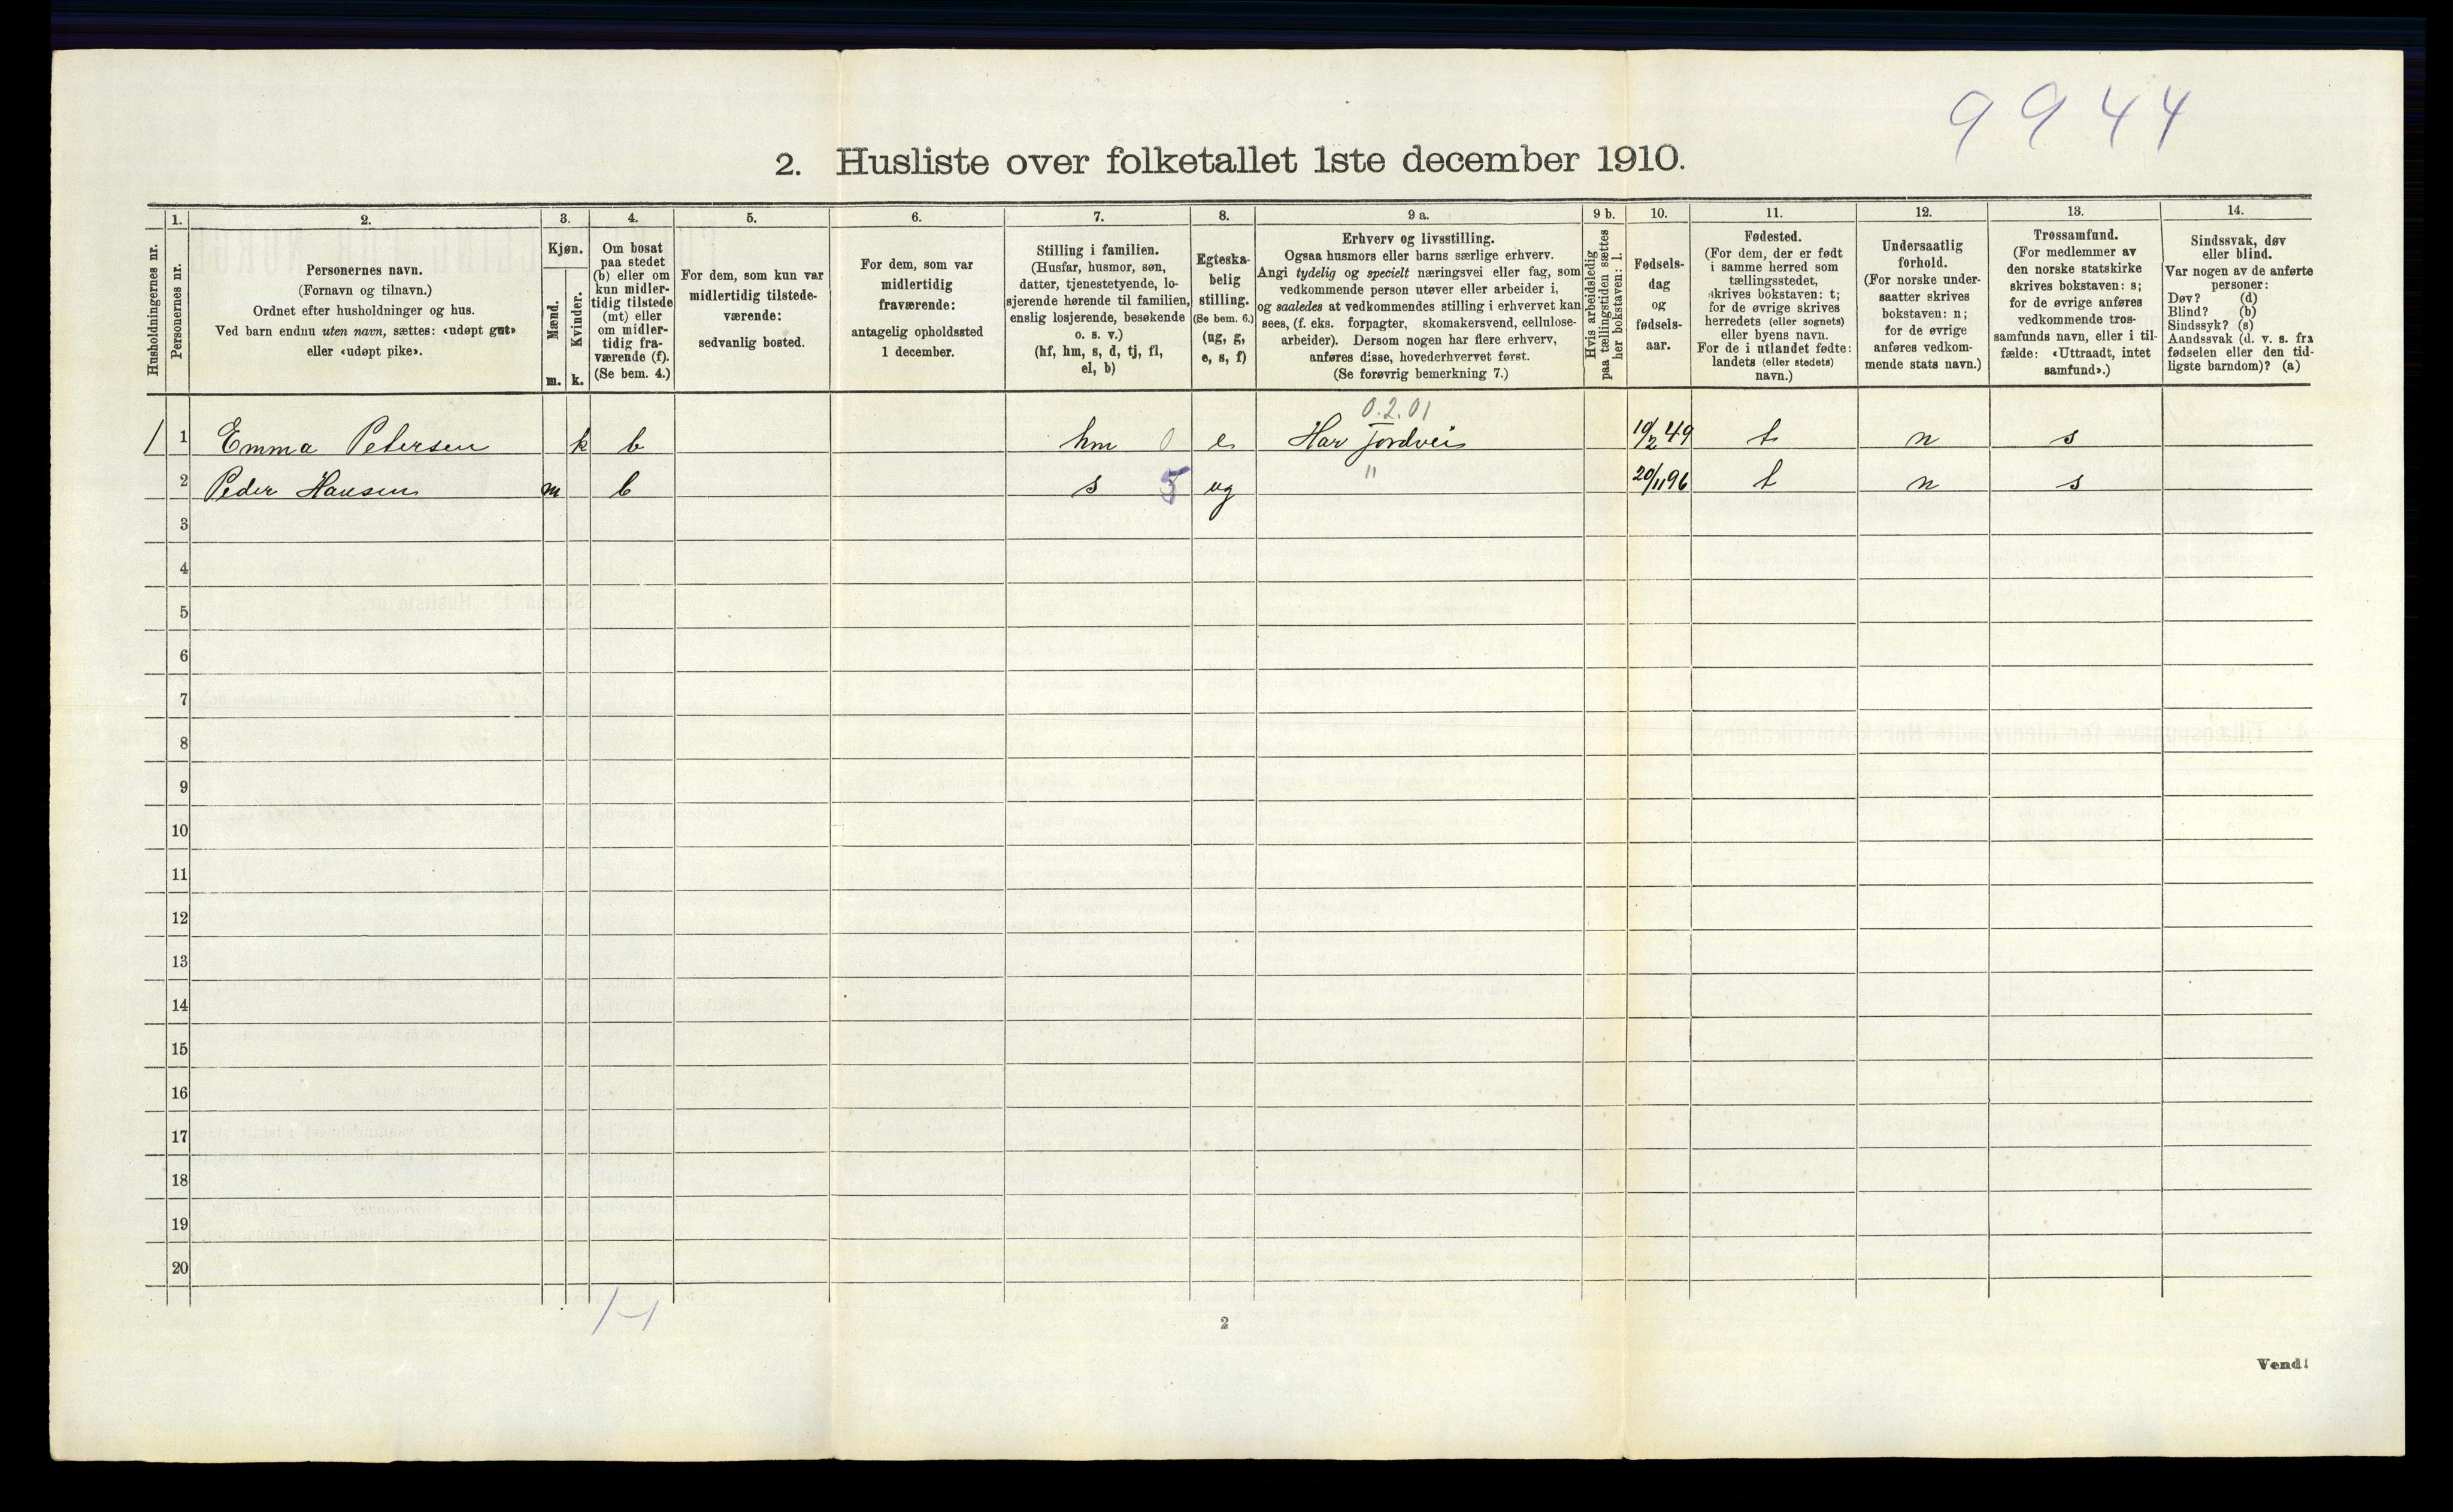 9944
2. Husliste over folketallet 1ste december 1910.
Husholdningernes nr.
1.
Personernes nr.
2.
Personernes navn.
(Fornavn og tilnavn.)
Ordnet efter husholdninger og hus.
Ved barn endnu uten navn, sættes: «udøpt gut»
eller «udøpt pike».
3.
Kjøn.
Mænd.
Kvinder.
m. k.
4.
Om bosat
paa stedet
(b) eller om
kun midler-
tidig tilstede
(mt) eller
om midler-
tidig fra-
værende (f).
(Se bem. 4.)
5.
For dem, som kun var
midlertidig tilstede-
værende:
sedvanlig bosted.
6.
For dem, som var
midlertidig
fraværende:
antagelig opholdssted
1 december.
7.
Stilling i familien.
(Husfar, husmor, søn,
datter, tjenestetyende, lo-
sjerende hørende til familien,
enslig losjerende, besøkende
o. s. v.)
(hf, hm, s, d, tj, fl,
el, b)
8.
Egteska-
belig
stilling.
(Se bem. 6.)
(ug, g,
e, s, f)
9 a.
Erhverv og livsstilling.
Ogsaa husmors eller barns særlige erhverv.
Angi tydelig og specielt næringsvei eller fag, som
vedkommende person utøver eller arbeider i,
og saaledes at vedkommendes stilling i erhvervet kan
sees, (f. eks. forpagter, skomakersvend, cellulose-
arbeider). Dersom nogen har flere erhverv,
anføres disse, hovederhvervet først.
(Se forøvrig bemerkning 7.)
9 b.
Hvis arbeidsledig
paa tællingstiden sættes
her bokstaven: l.
10.
Fødsels-
dag
og
fødsels-
aar.
11.
Fødested.
(For dem, der er født
i samme herred som
tællingsstedet,
skrives bokstaven: t;
for de øvrige skrives
herredets (eller sognets)
eller byens navn.
For de i utlandet fødte:
landets (eller stedets)
navn.)
12.
Undersaatlig
forhold.
(For norske under-
saatter skrives
bokstaven: n;
for de øvrige
anføres vedkom-
mende stats navn.)
13.
Trossamfund.
(For medlemmer av
den norske statskirke
skrives bokstaven: s;
for de øvrige anføres
vedkommende tros-
samfunds navn, eller i til-
fælde: «Uttraadt, intet
samfund».)
14.
Sindssvak, døv
eller blind.
Var nogen av de anførte
personer:
Døv? (d)
Blind? (b)
Sindssyk? (s)
Aandssvak (d. v. s. fra
fødselen eller den tid-
ligste barndom)? (a)
0.2.01
1 1 Emma Petersen k b hm 0 e Har Jordvei 19/2 49 t n s
2 Peder Hansen m b s 5 ug " 20/11 96 t n s
3
4
5
6
7
8
9
10
11
12
13
14
15
16
17
18
19
20
1-1
2
Vend!